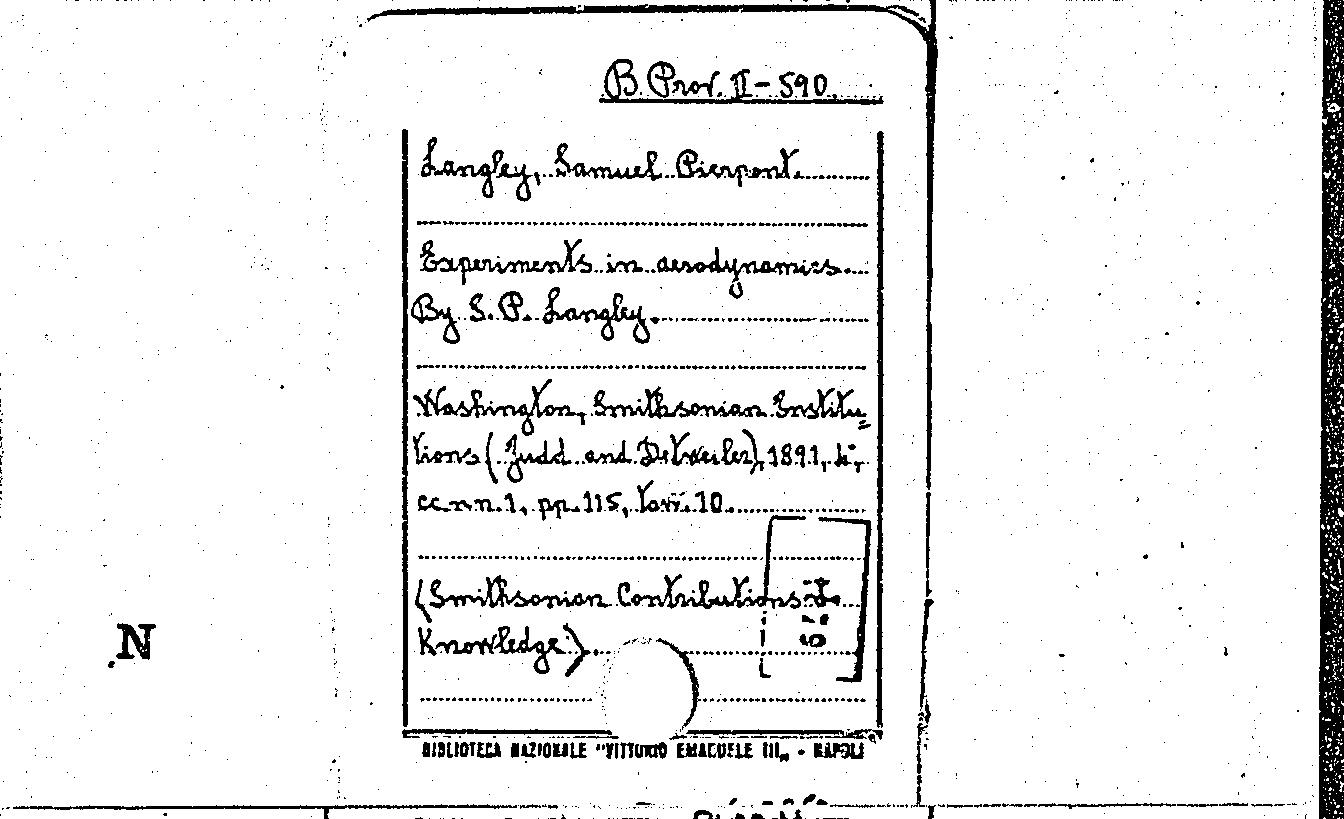 B. Prov. II - 590
Langley, Samuel Pierpont.
Experiments in aerodynamics.
By S. P. Langley.
Washington, Smithsonian Institu=
tions (Judd and Detweiler), 1891, 4°,
cc. n. n. 1, pp. 115, tav. 10.
(Smithsonian Contributions to
Knowledge).
N
BIBLIOTECA NAZIONALE "VITTORIO EMANUELE III„ - NAPOLI